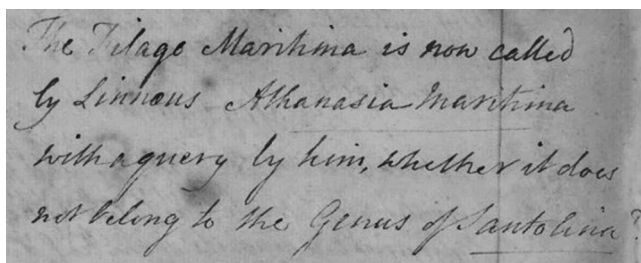 The Filago Maritima is now called
by Linnæus Athanasia Maritima
with a query by him, whether it does
not belong to the Genus of Santolina?